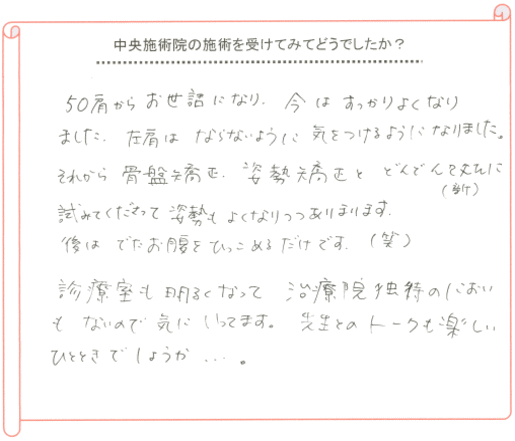 中央施術院の施術を受けてみてどうでしたか？
50肩からお世話になり、今はすっかりよくなり
ました。左肩はならないように気をつけるようになりました。
それから骨盤矯正、姿勢矯正とどんどん
(新)
試みてくださって姿勢もよくなりつつあります。
後はでたお腹をひっこめるだけです。(笑)
診療室も明るくなって 治療院独特のにおい
もないので気にいってます。先生とのトークも楽しい
ひとときでしょうか…。